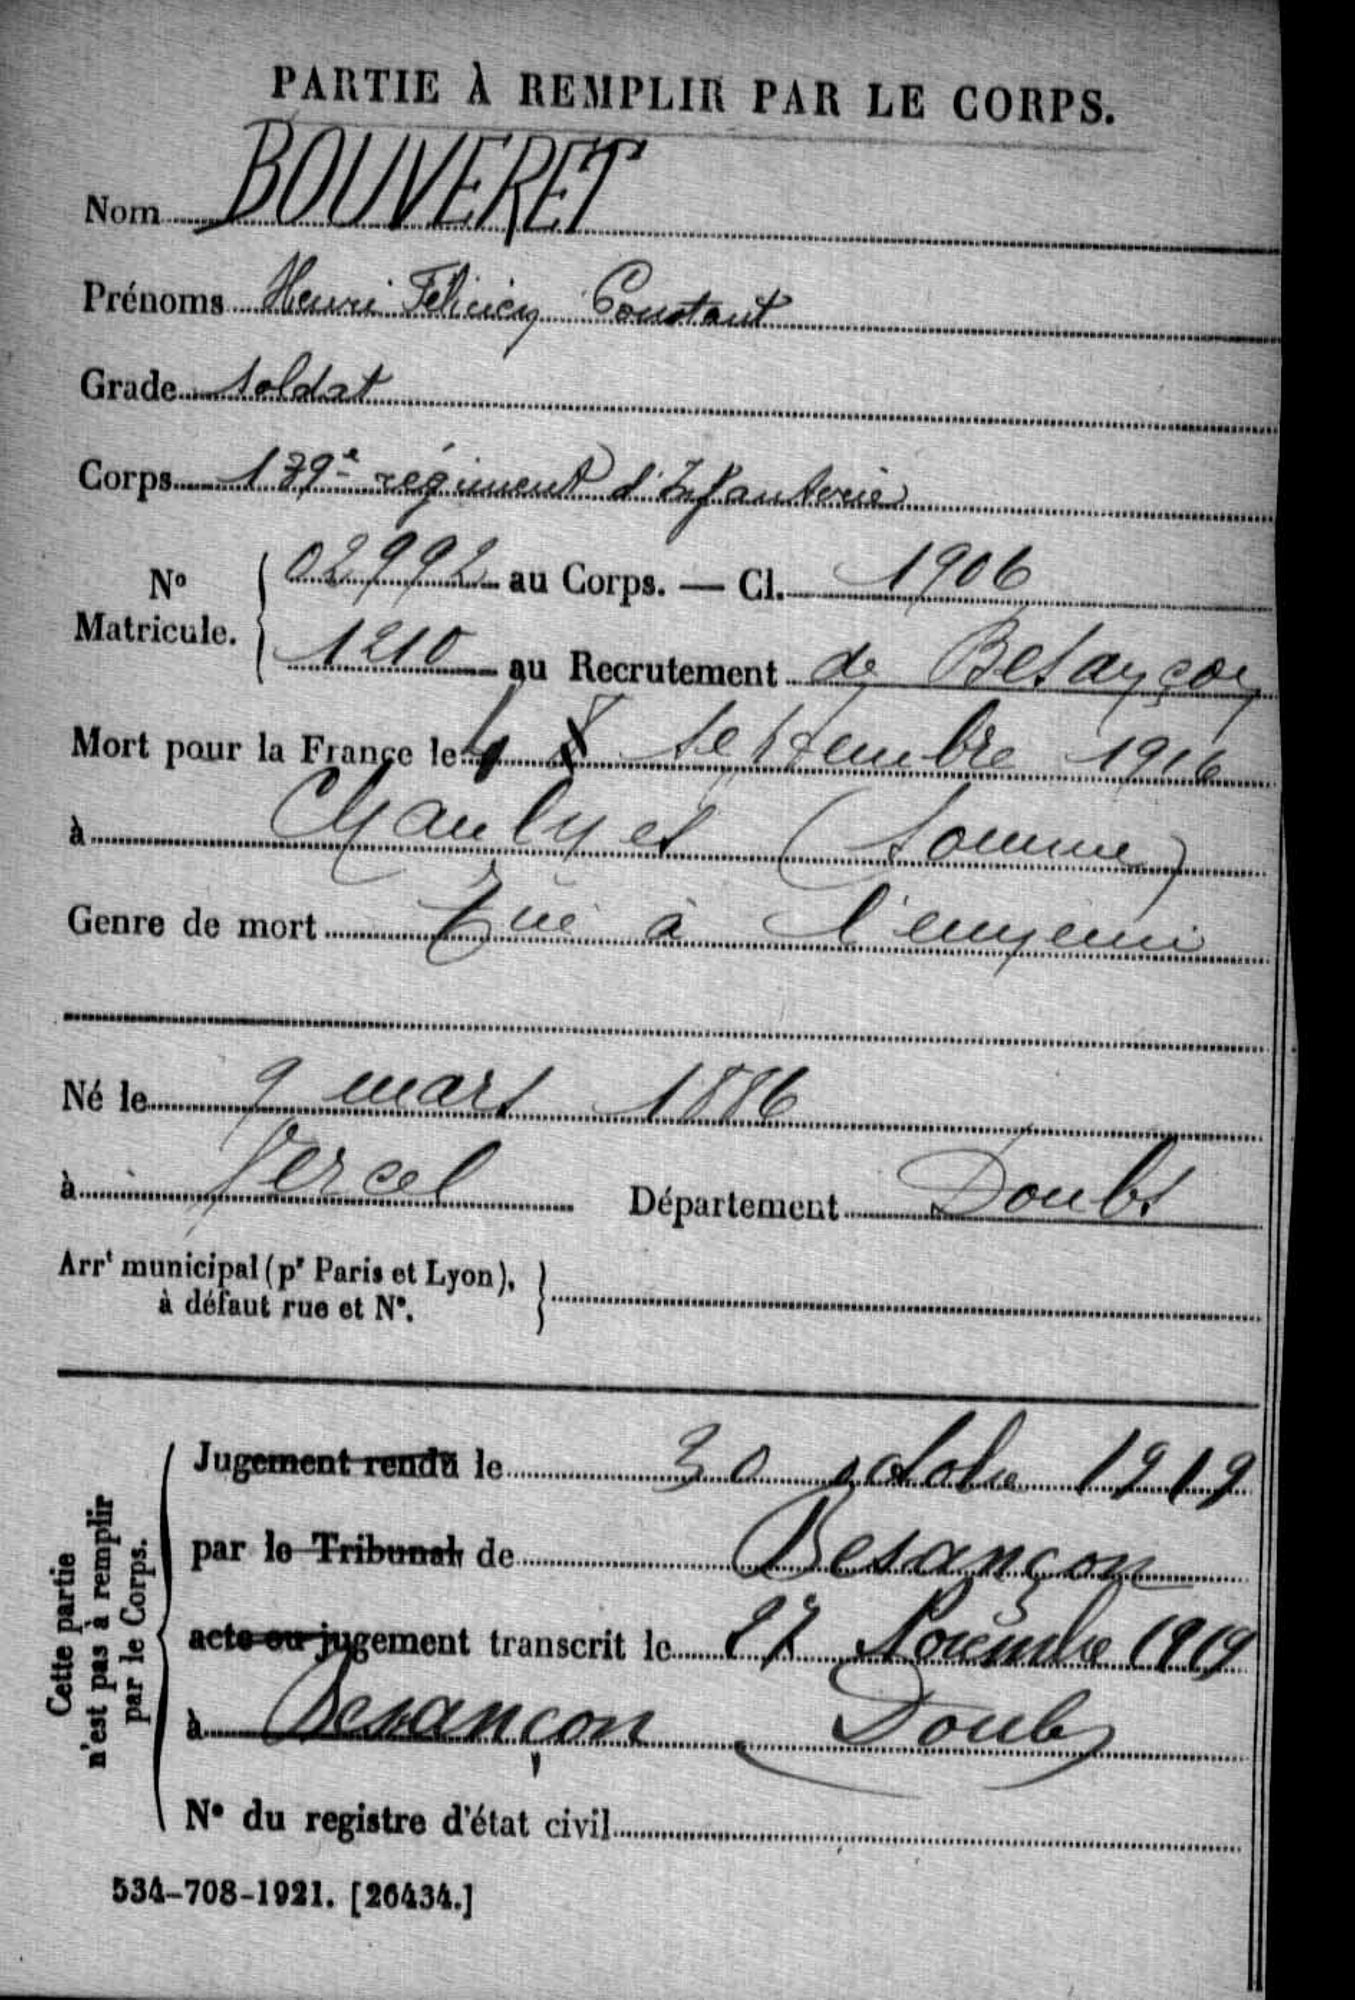 PARTIE À REMPLIR PAR LE CORPS.
Nom BOUVERET
Prénoms Henri Félicien Constant
Grade soldat
Corps 139e régiment d'Infanterie
No Matricule. 02992 au Corps. — Cl. 1906
1210 au Recrutement de Besançon
Mort pour la France le 4 septembre 1916
à Chaulnes (Somme)
Genre de mort Tué à l'ennemi
Né le 9 mars 1886
à Vercel Département Doubs
Arrt municipal (pr Paris et Lyon),
à défaut rue et N°.
Cette partie n'est pas à remplir par le Corps.
Jugement rendu le 30 octobre 1919
par le Tribunal de Besançon
acte ou jugement transcrit le 27 Novembre 1919
à Besançon Doubs
N° du registre d'état civil
534-708-1921. [26434.]